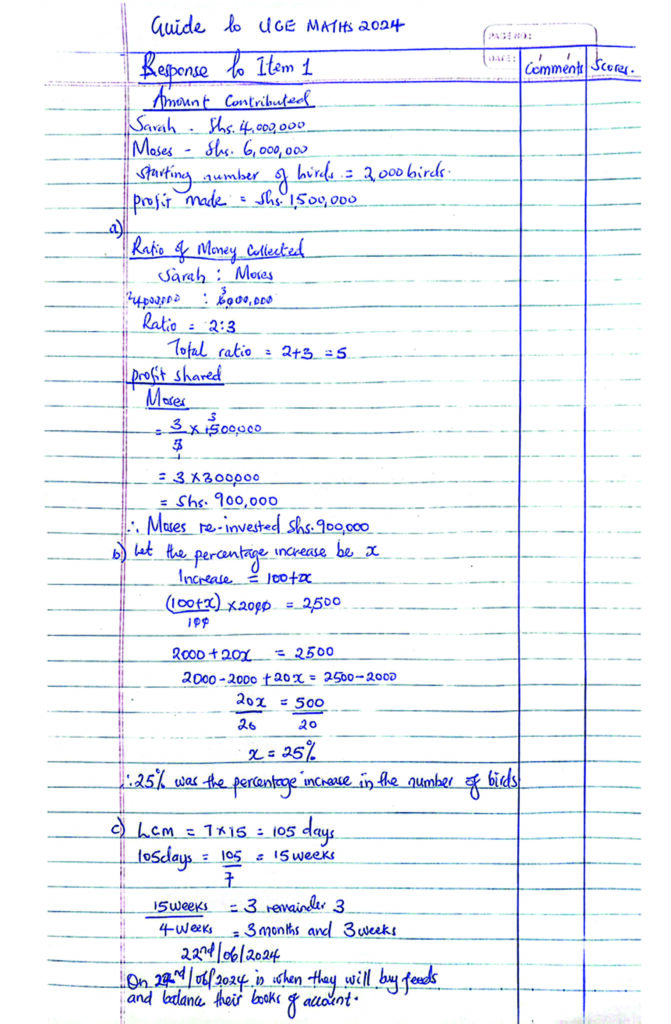 Guide to UCE MATHS 2024
PAGE NO:
DATE:
Response to Item 1
Comments
Scores.
Amount Contributed
Sarah - Shs. 4,000,000
Moses - Shs. 6,000,000
starting number of birds = 2,000 birds.
profit made = Shs. 1,500,000
a)
Ratio of Money Collected
Sarah : Moses
2 4,000,000 : 3 6,000,000
Ratio = 2:3
Total ratio = 2+3 = 5
profit shared
Moses
= 3/5 × 1,500,000
= 3 × 300,000
= Shs. 900,000
∴ Moses re-invested Shs. 900,000
b) Let the percentage increase be x
Increase = 100+x
(100+x)/100 × 2000 = 2,500
2000 + 20x = 2500
2000 - 2000 + 20x = 2500 - 2000
20x/20 = 500/20
x = 25%
∴ 25% was the percentage increase in the number of birds
c) LCM = 7 × 15 = 105 days
105days = 105/7 = 15 weeks
15 weeks/4 weeks = 3 remainder 3
= 3 months and 3 weeks
22nd/06/2024
On 22nd/06/2024 is when they will buy feeds
and balance their books of account.